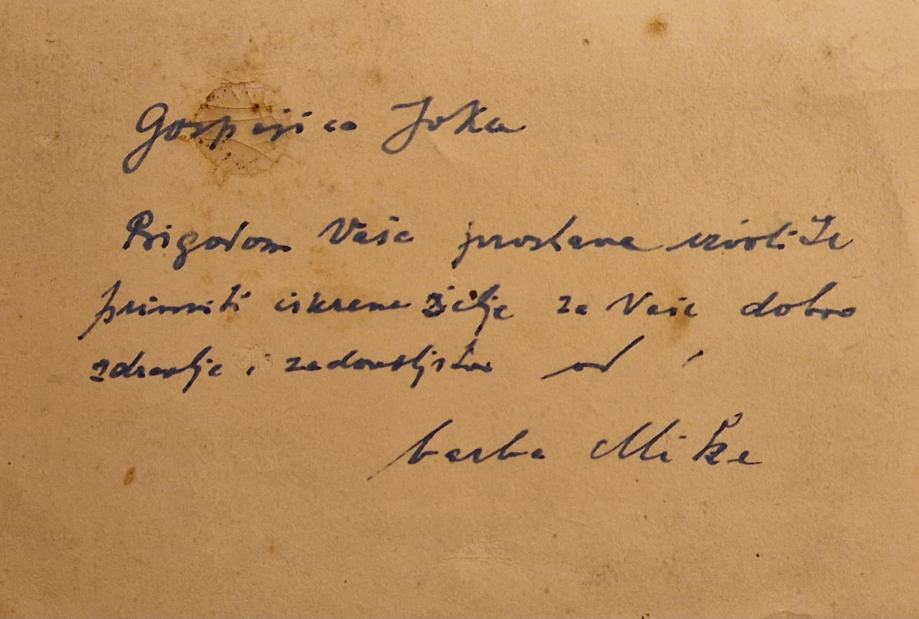 Gospojica Joka
Prigodom Vaše proslave izvolite
primiti iskrene želje za Vaše dobro
zdravlje i zadovoljstvo od
barba Mike